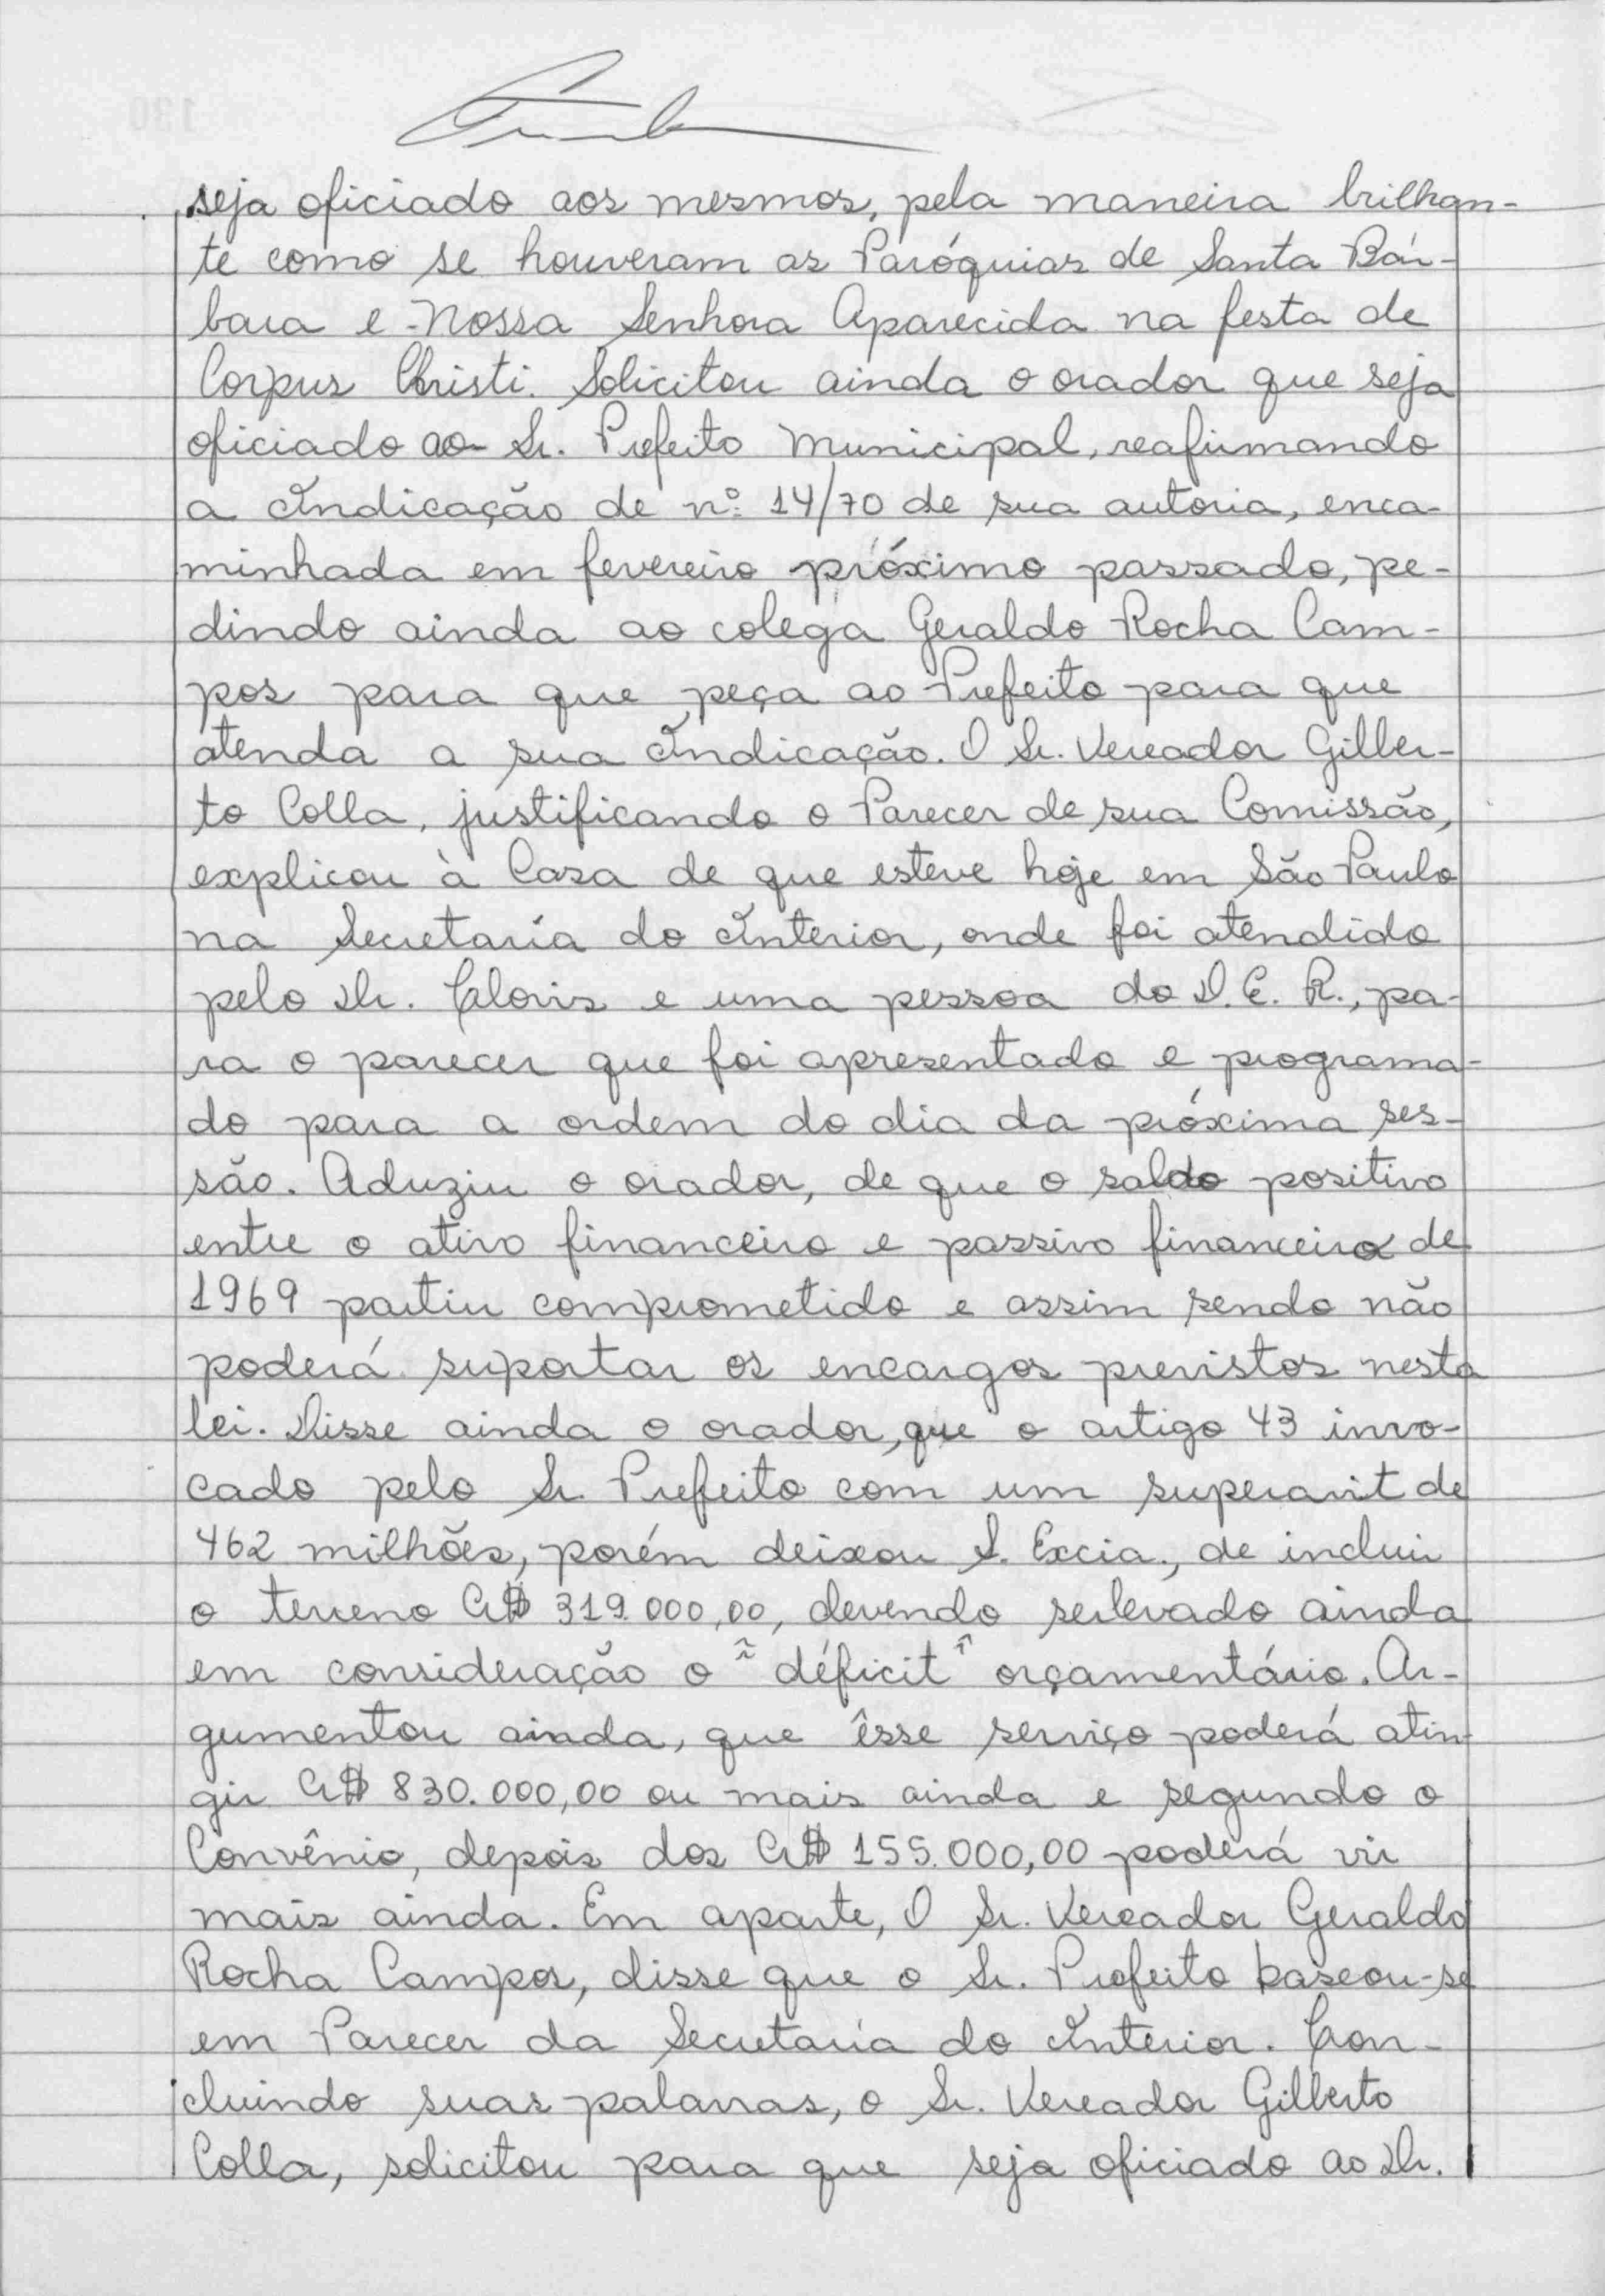 seja oficiado aos mesmos, pela maneira brilhan-
te como se houveram as Paróquias de Santa Bár-
bara e Nossa Senhora Aparecida na festa de
Corpus Christi. Solicitou ainda o orador que seja
oficiado ao Sr. Prefeito Municipal, reafirmando
a Indicação de nº 14/70 de sua autoria, enca-
minhada em fevereiro próximo passado, pe-
dindo ainda ao colega Geraldo Rocha Cam-
pos para que peça ao Prefeito para que
atenda a sua Indicação. O Sr. Vereador Gilber-
to Colla, justificando o Parecer de sua Comissão,
explicou à Casa de que esteve hoje em São Paulo
na Secretaria do Interior, onde foi atendido
pelo Dr. Cloris e uma pessoa do D. E. R., pa-
ra o parecer que foi apresentado e programa-
do para a ordem do dia da próxima ses-
são. Aduziu o orador, de que o saldo positivo
entre o ativo financeiro e passivo financeiro de
1969 partiu comprometido e assim sendo não
poderá suportar os encargos previstos nesta
lei. Disse ainda o orador, que o artigo 43 invo-
cado pelo Sr. Prefeito com um superavit de
462 milhões, porém deixou S. Excia., de incluir
o terreno Cr$ 319.000,00, devendo ser levado ainda
em consideração o "déficit" orçamentário. Ar-
gumentou ainda, que êsse serviço poderá atin-
gir Cr$ 830.000,00 ou mais ainda e segundo o
Convênio, depois dos Cr$ 155.000,00 poderá vir
mais ainda. Em aparte, O Sr. Vereador Geraldo
Rocha Campos, disse que o Sr. Prefeito baseou-se
em Parecer da Secretaria do Interior. Con-
cluindo suas palavras, o Sr. Vereador Gilberto
Colla, solicitou para que seja oficiado ao Dr.